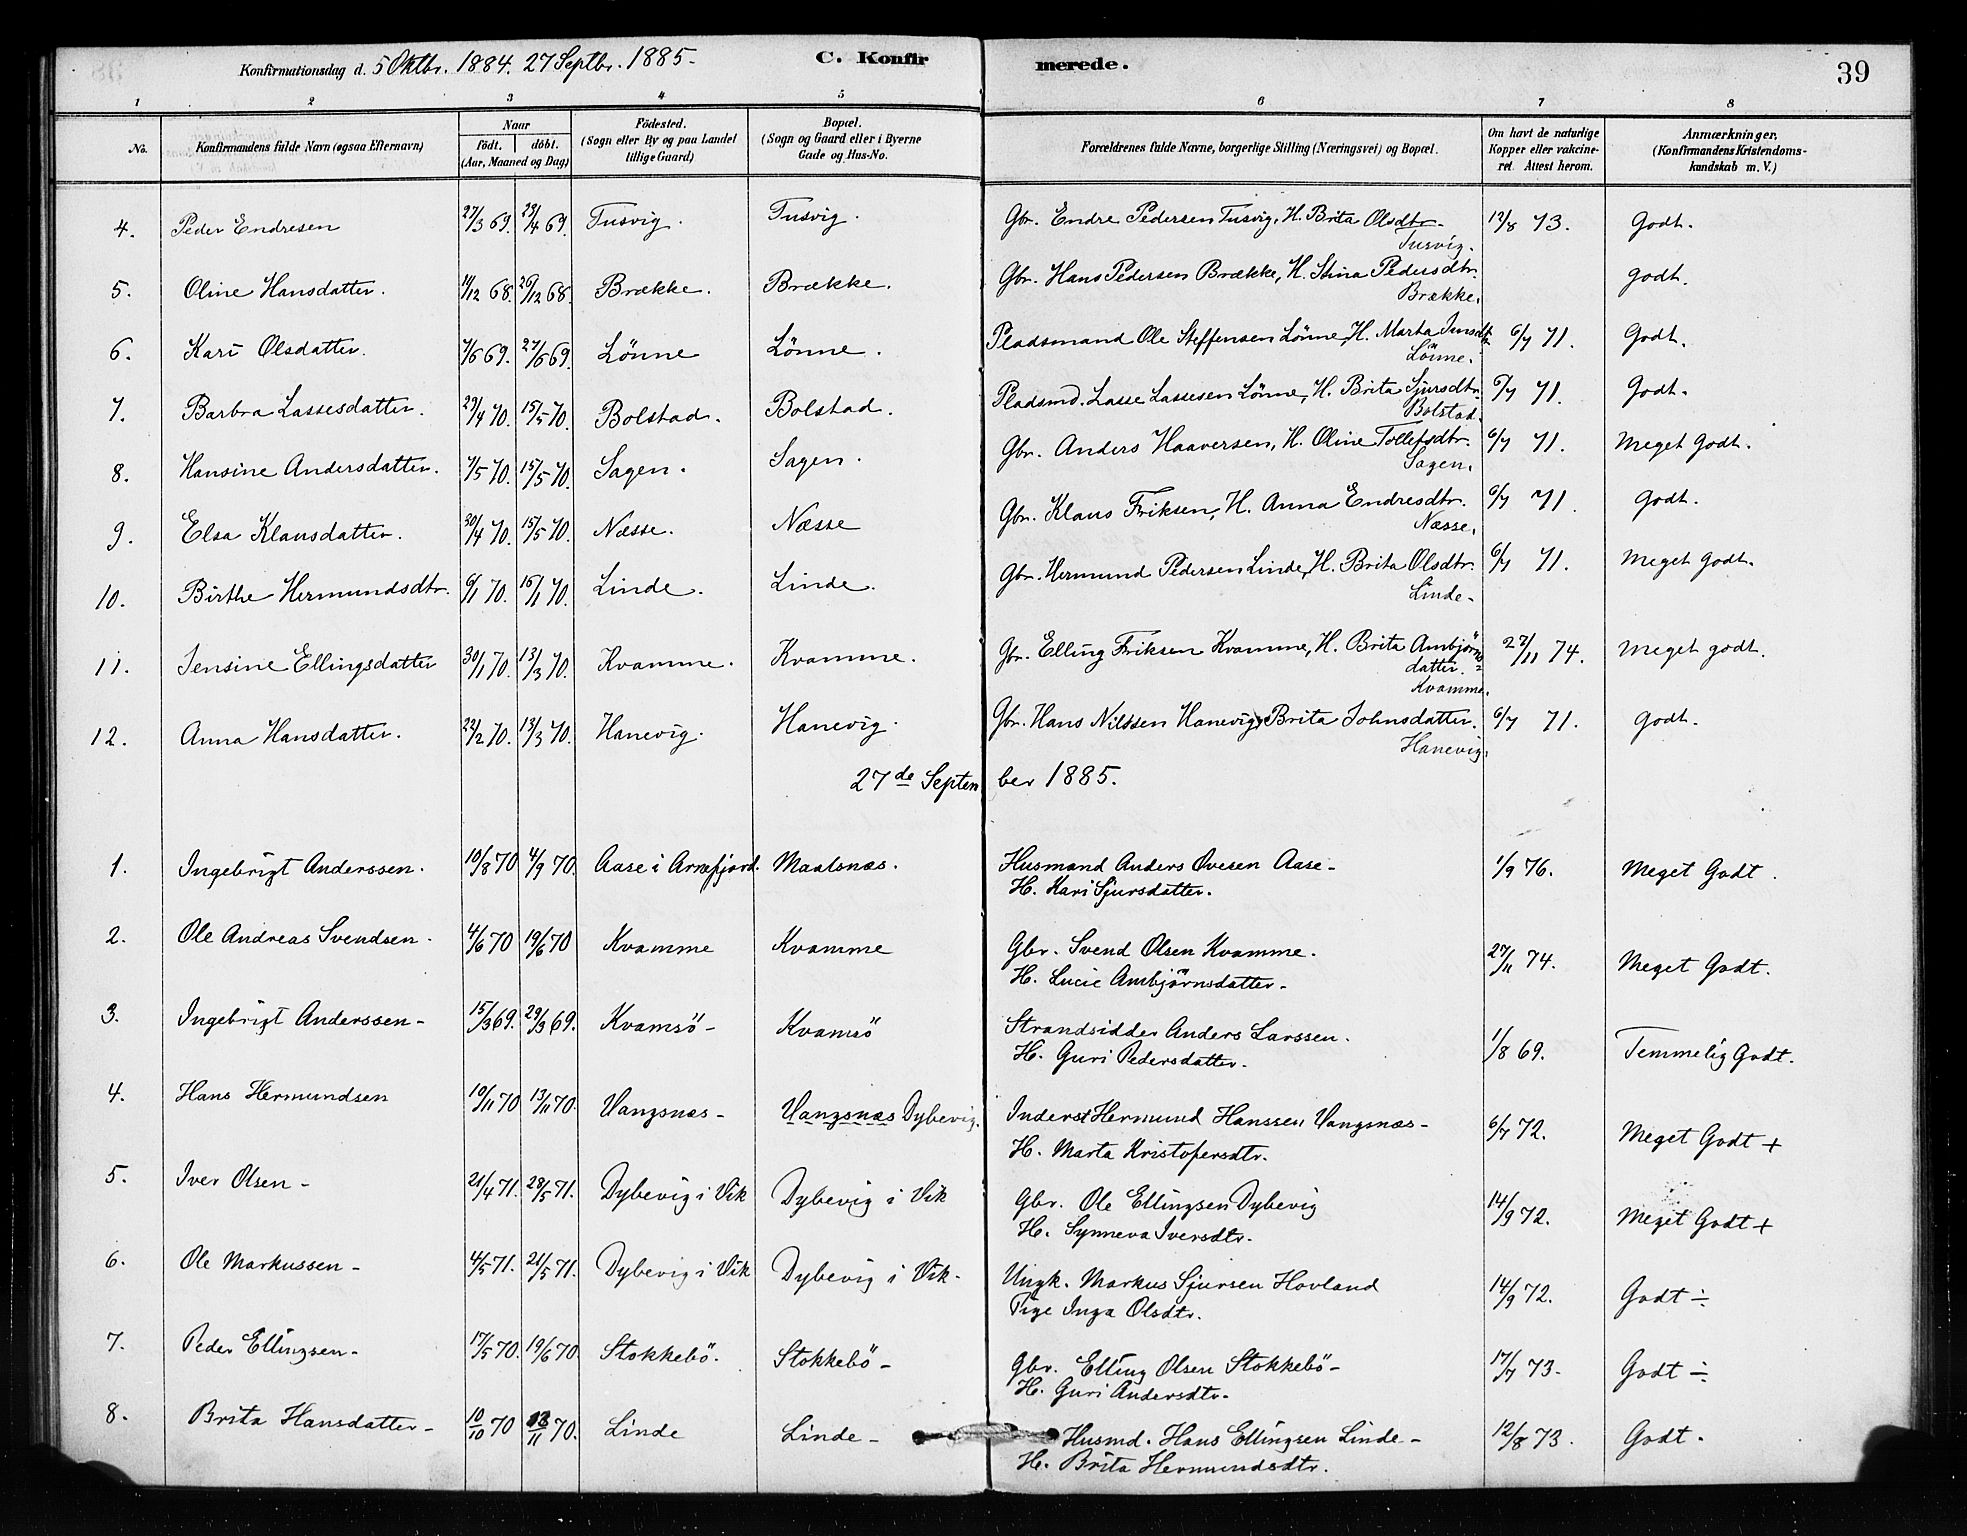 Konfirmationsdag d. 5 Oktbr. 1884. 27 Septbr. 1885. C. Konfirmerede. 39
1 2 3 4 5 6 7 8
No. Konfirmandens fulde Navn (ogsaa Efternavn) Naar Födt. döbt. (Aar, Maaned og Dag) Födested. (Sogn eller By og paa Landet tillige Gaard) Bopæl. (Sogn og Gaard eller i Byerne Gade og Hus-No. Forældrenes fulde Navne, borgerlige Stilling (Næringsvei) og Bopæl. Om havt de naturlige Kopper eller vakcineret. Attest herom. Anmærkninger, (Konfirmandens Kristendomskundskab m. V.)
4. Peder Endresen 27/3 69. 29/4 69. Tusvig. Tusvig. Gbr. Endre Pedersen Tusvig, H. Brita Olsdtr. 12/8 73. Godt.
Tusvig.
5. Oline Hansdatter. 11/12 68. 26/12 68. Brække. Brække. Gbr. Hans Pedersen Brække, H. Stina Pedersdtr. Godt.
Brække.
6. Kari Olsdatter. 7/6 69. 27/6 69. Lönne Lönne. Pladsmand Ole Steffensen Lönne, H. Marta Jensdtr 6/7 71. Godt.
Lönne.
7. Barbra Lassesdatter. 23/4 70. 15/5 70. Bolstad. Bolstad. Pladsmd. Lasse Lassesen Lönne, H. Brita Sjursdtr. 6/7 71. Godt.
Bolstad.
8. Hansine Andersdatter. 7/5 70. 15/5 70. Sagen. Sagen. Gbr. Anders Haaversen, H. Oline Tollefsdtr. 6/7 71. Meget Godt.
Sagen.
9. Elsa Klausdatter. 30/4 70. 15/5 70. Næsse. Næsse Gbr. Klaus Eriksen, H. Anna Endresdtr. 6/7 71 Godt.
Næsse.
10. Birthe Hermundsdtr. 6/1 70. 16/1 70. Linde. Linde. Gbr. Hermund Pedersen Linde, H. Brita Olsdtr. 6/7 71. Meget Godt.
Linde.
11. Jensine Ellingsdatter 30/1 70. 13/3 70. Kvamme. Kvamme. Gbr. Elling Eriksen Kvamme, H. Brita Ambjörns= 27/11 74. Meget godt.
datter.
Kvamme.
12. Anna Hansdatter. 22/2 70. 13/3 70. Hanevig. Hanevig. Gbr. Hans Nilssen Hanevig, Brita Johnsdatter. 6/7 71. Godt.
Hanevig.
27de September 1885.
1. Ingebrigt Anderssen. 10/8 70 4/9 70. Aase i Arnefjord. Maalsnæs. Husmand Anders Ovesen Aase- 1/9 76. Meget Godt.
H. Kari Sjursdatter.
2. Ole Andreas Svendsen. 4/6 70 19/6 70 Kvamme Kvamme Gbr. Svend Olsen Kvamme. 27/11 74. Meget Godt.
H. Lucie Ambjörnsdatter-
3. Ingebrigt Anderssen- 15/3 69. 29/3 69. Kvamsö- Kvamsö Strandsidder Anders Larssen. 1/8 69. Temmelig Godt.
H. Guri Pedersdatter.
4. Hans Hermundsen 10/11 70 13/11 70. Vangsnæs- Vangsnæs Dybevig. Inderst Hermund Hanssen Vangsnæs- 6/7 72. Meget Godt +
H. Marta Kristofersdtr.
5. Iver Olsen- 21/4 71. 28/5 71. Dybevig i Vik Dybevig i Vik Gbr. Ole Ellingsen Dybevig 14/9 72. Meget Godt +
H. Synneva Iversdtr.
6. Ole Markussen- 4/5 71. 21/5 71. Dybevig i Vik Dybevig i Vik. Ungk. Markus Sjursen Hovland 14/9 72. Godt ÷
Pige Inga Olsdtr.
7. Peder Ellingsen- 17/5 70. 19/6 70. Stokkebö. Stokkebö- Gbr. Elling Olsen Stokkebö- 17/7 73. Godt ÷
H. Guri Andersdtr.
8. Brita Hansdatter- 10/10 70 13/11 70. Linde Linde- Husmd. Hans Ellingsen Linde- 12/8 73. Godt.
H. Brita Hermundsdtr.